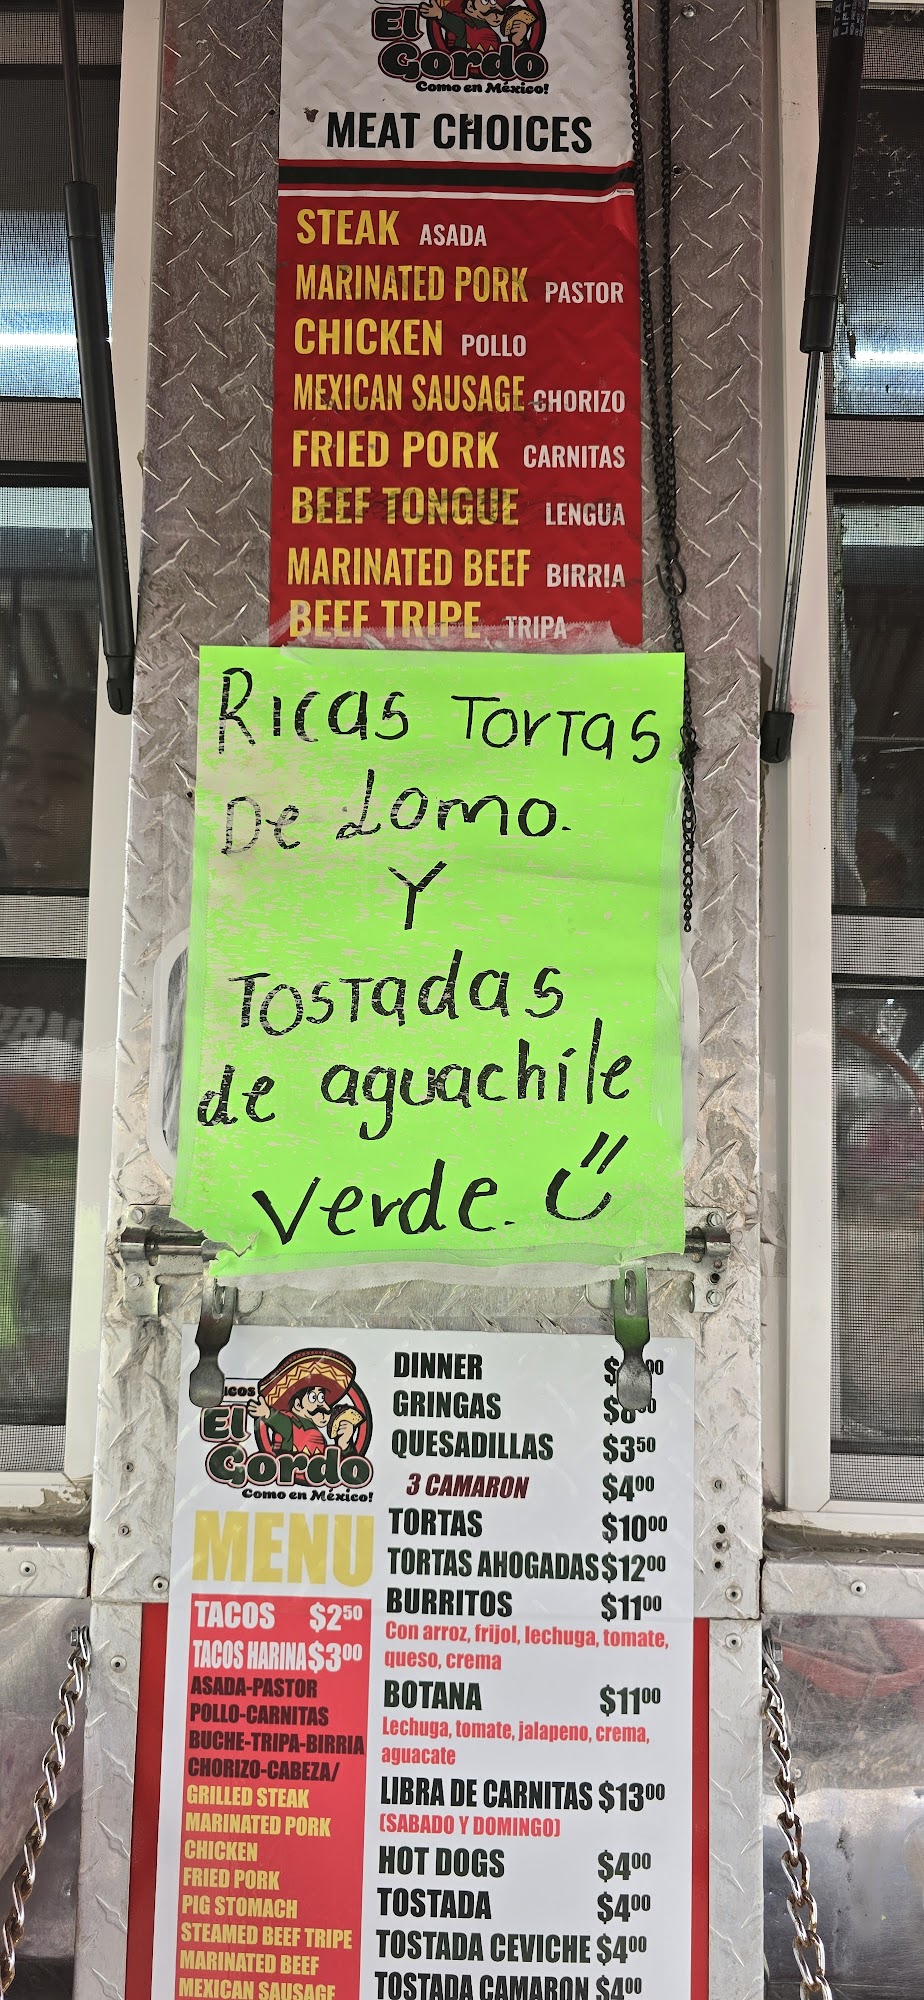 El
Gordo
Como en México!
MEAT CHOICES
STEAK ASADA
MARINATED PORK PASTOR
CHICKEN POLLO
MEXICAN SAUSAGE CHORIZO
FRIED PORK CARNITAS
BEEF TONGUE LENGUA
MARINATED BEEF BIRRIA
BEEF TRIPE TRIPA
Ricas Tortas
De Lomo.
Y
Tostadas
de aguachile
verde.
El
Gordo
Como en México!
MENU
TACOS $2.50
TACOS HARINA $3.00
ASADA-PASTOR
POLLO-CARNITAS
BUCHE-TRIPA-BIRRIA
CHORIZO-CABEZA/
GRILLED STEAK
MARINATED PORK
CHICKEN
FRIED PORK
PIG STOMACH
STEAMED BEEF TRIPE
MARINATED BEEF
MEXICAN SAUSAGE
DINNER
GRINGAS
QUESADILLAS $3.50
3 CAMARON $4.00
TORTAS $10.00
TORTAS AHOGADAS $12.00
BURRITOS $11.00
Con arroz, frijol, lechuga, tomate,
queso, crema
BOTANA $11.00
Lechuga, tomate, jalapeno, crema,
aguacate
LIBRA DE CARNITAS $13.00
(SABADO Y DOMINGO)
HOT DOGS $4.00
TOSTADA $4.00
TOSTADA CEVICHE $4.00
TOSTADA CAMARON $4.00